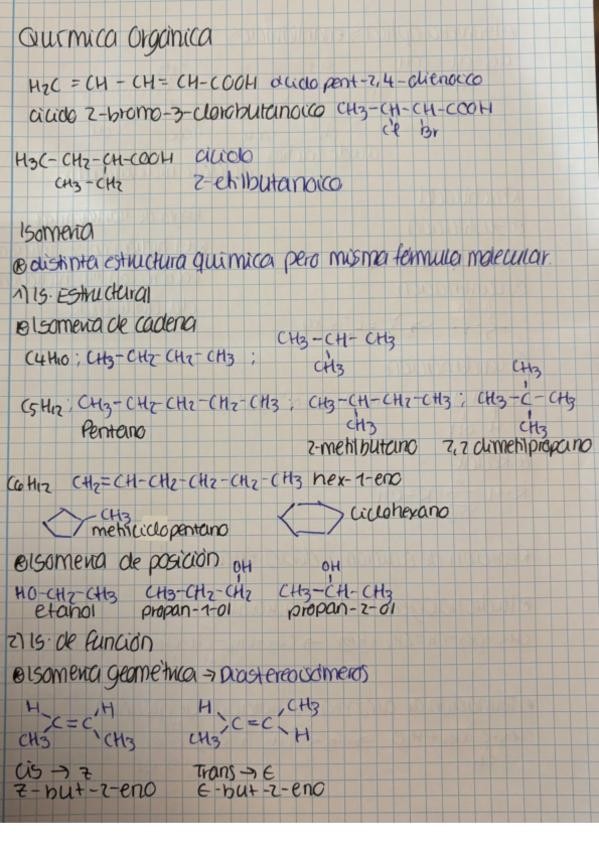 Química Orgánica
H2C = CH - CH = CH-COOH ácido pent-2,4-dienoico
ácido 2-bromo-3-clorobutanoico CH3-CH-CH-COOH
Cl Br
H3C- CH2-CH-COOH ácido
CH3-CH2 2-etilbutanoico
Isomería
distinta estructura química pero misma fórmula molecular.
1) Is. Estructural
Isomería de cadena
C4H10 ; CH3-CH2-CH2-CH3 ; CH3-CH-CH3
CH3
C5H12 ; CH3-CH2-CH2-CH2-CH3 ; CH3-CH-CH2-CH3 ; CH3-C-CH3
CH3
CH3 CH3
Pentano 2-metilbutano 2,2 dimetilpropano
C6H12 CH2=CH-CH2-CH2-CH2-CH3 hex-1-eno
-CH3 metilciclopentano ciclohexano
Isomería de posición
OH OH
HO-CH2-CH3 CH3-CH2-CH2 CH3-CH-CH3
etanol propan-1-ol propan-2-ol
2) Is. de función
Isomería geométrica → Diastereoisómeros
H H H CH3
C=C C=C
CH3 CH3 CH3 H
Cis → Z Trans → E
Z-but-2-eno E-but-2-eno